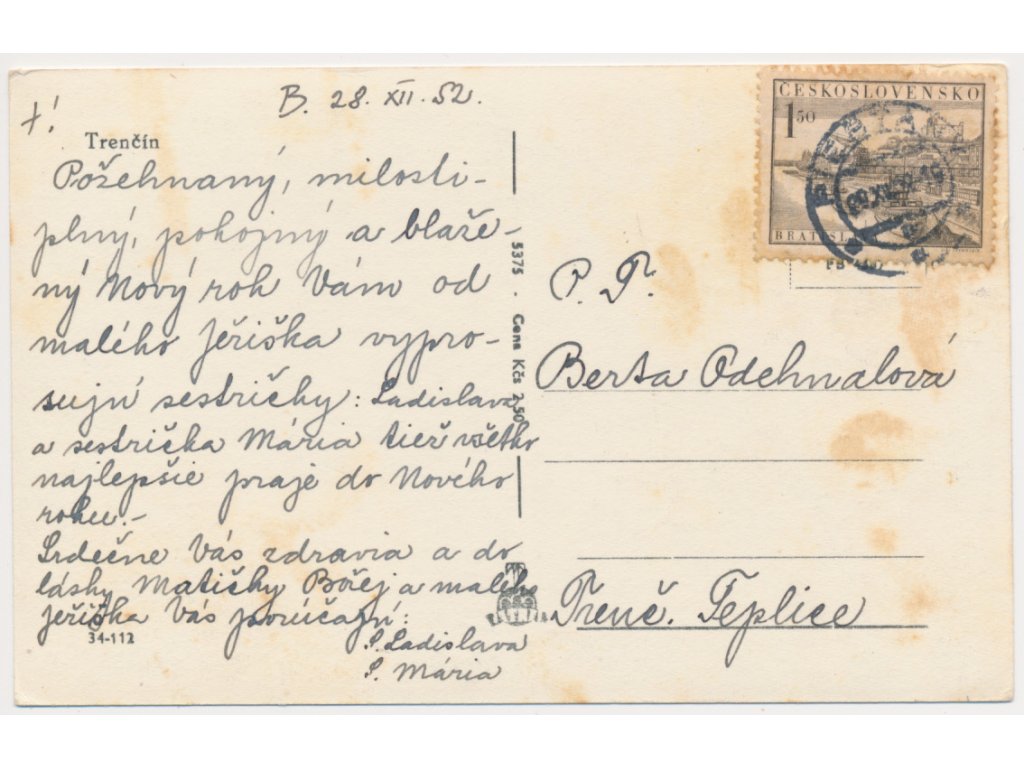 †!
B. 28. XII. 52.
Trenčín
Požehnaný, milosti-
plný, pokojný a blaže-
ný Nový rok Vám od
malého Ježiška vypro-
sujú sestričky: Ladislava
a sestrička Mária tiež všetko
najlepšie praje do Nového
roku.-
Srdečne Vás zdravia a do
lásky Matičky Božej a malého
Ježiška Vás porúčajú:
S. Ladislava
S. Mária
34-112
5375 . Cena Kčs 2,50
ČESKOSLOVENSKO
1 50
P. T.
Berta Odehnalová
Trenč. Teplice